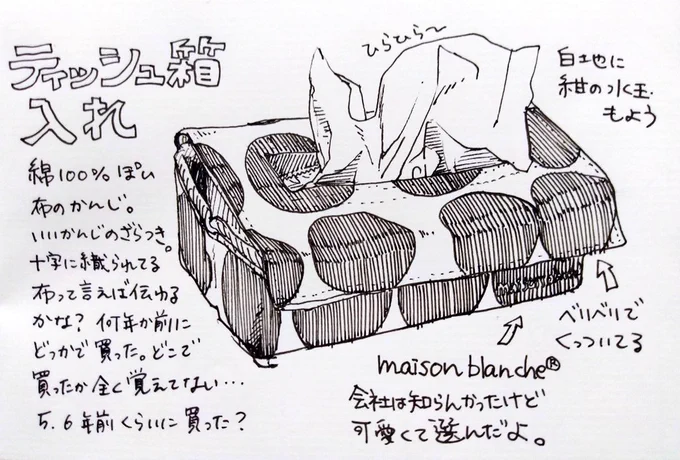 ティッシュ箱
入れ
綿100%ぽい
布のかんじ。
いいかんじのざらつき。
十字に織られてる
布って言えば伝わる
かな?何年か前に
どっかで買った。どこで
買ったか全く覚えてない…
5.6年前くらいに買った?
ひらひら〜
白地に
紺の水玉
もよう
maison blanche
ベリベリで
くっついてる
maison blanche®
会社は知らんかったけど
可愛くて選んだよ。